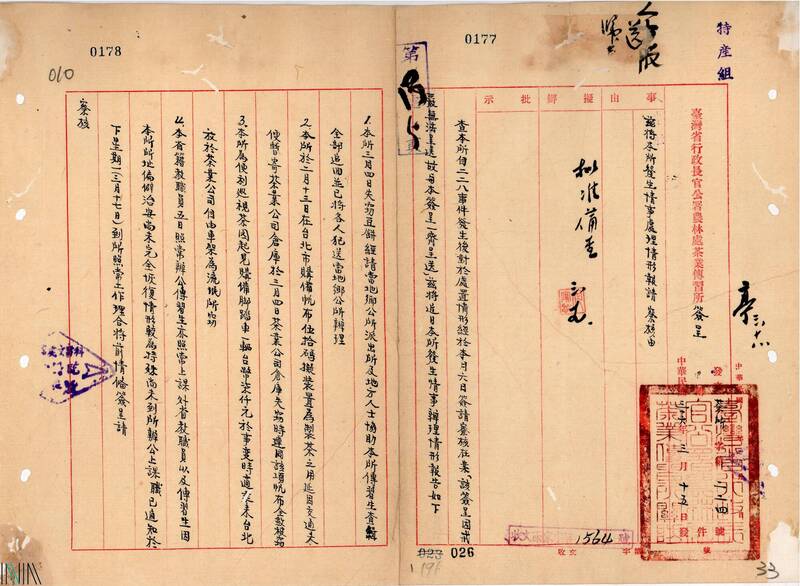 特産組
0177
臺灣省行政長官公署農林處茶業傳習所 簽呈
事由擬辦批示
茲將本所發生情事處理情形報請 察核由
拟准備查
發 字第 號
中華民國三十六年三月十五日發
件
查本所自二二八事件發生後對於處置情形經於本月六日簽請察核在案該簽呈因戒
嚴無法呈送故與本簽呈一齊呈送茲將近日本所發生情事辦理情形報告如下
收文
1564
號
023
026
33
0178
010
1.本所三月四日失竊豆餅經請當地鄉公所派出所及地方人士協助本所傳習生查緝
全部追回並已將各人犯送當地鄉公所辦理
2.本所於二月十三日在台北市購備帆布伍拾碼擬裝置為製茶之用延因交通不
便暫寄茶業公司倉庫於三月四日茶業公司倉庫失竊時連同該項帆布全數被竊
3.本所為便利巡視茶園起見購備脚踏車一輛台幣柒仟元於事変時適在來台北
放於茶業公司自由車架為流氓所竊
4.本省籍教職員五日照常辦公傳習生亦照常上課外省教職員以及傳習生因
本所所址偏僻治安尚未完全恢復情形較為特殊尚未到所辦公上課 職已通知於
下星期一(三月十七日)到所照常工作理合將前情備簽呈請
察核